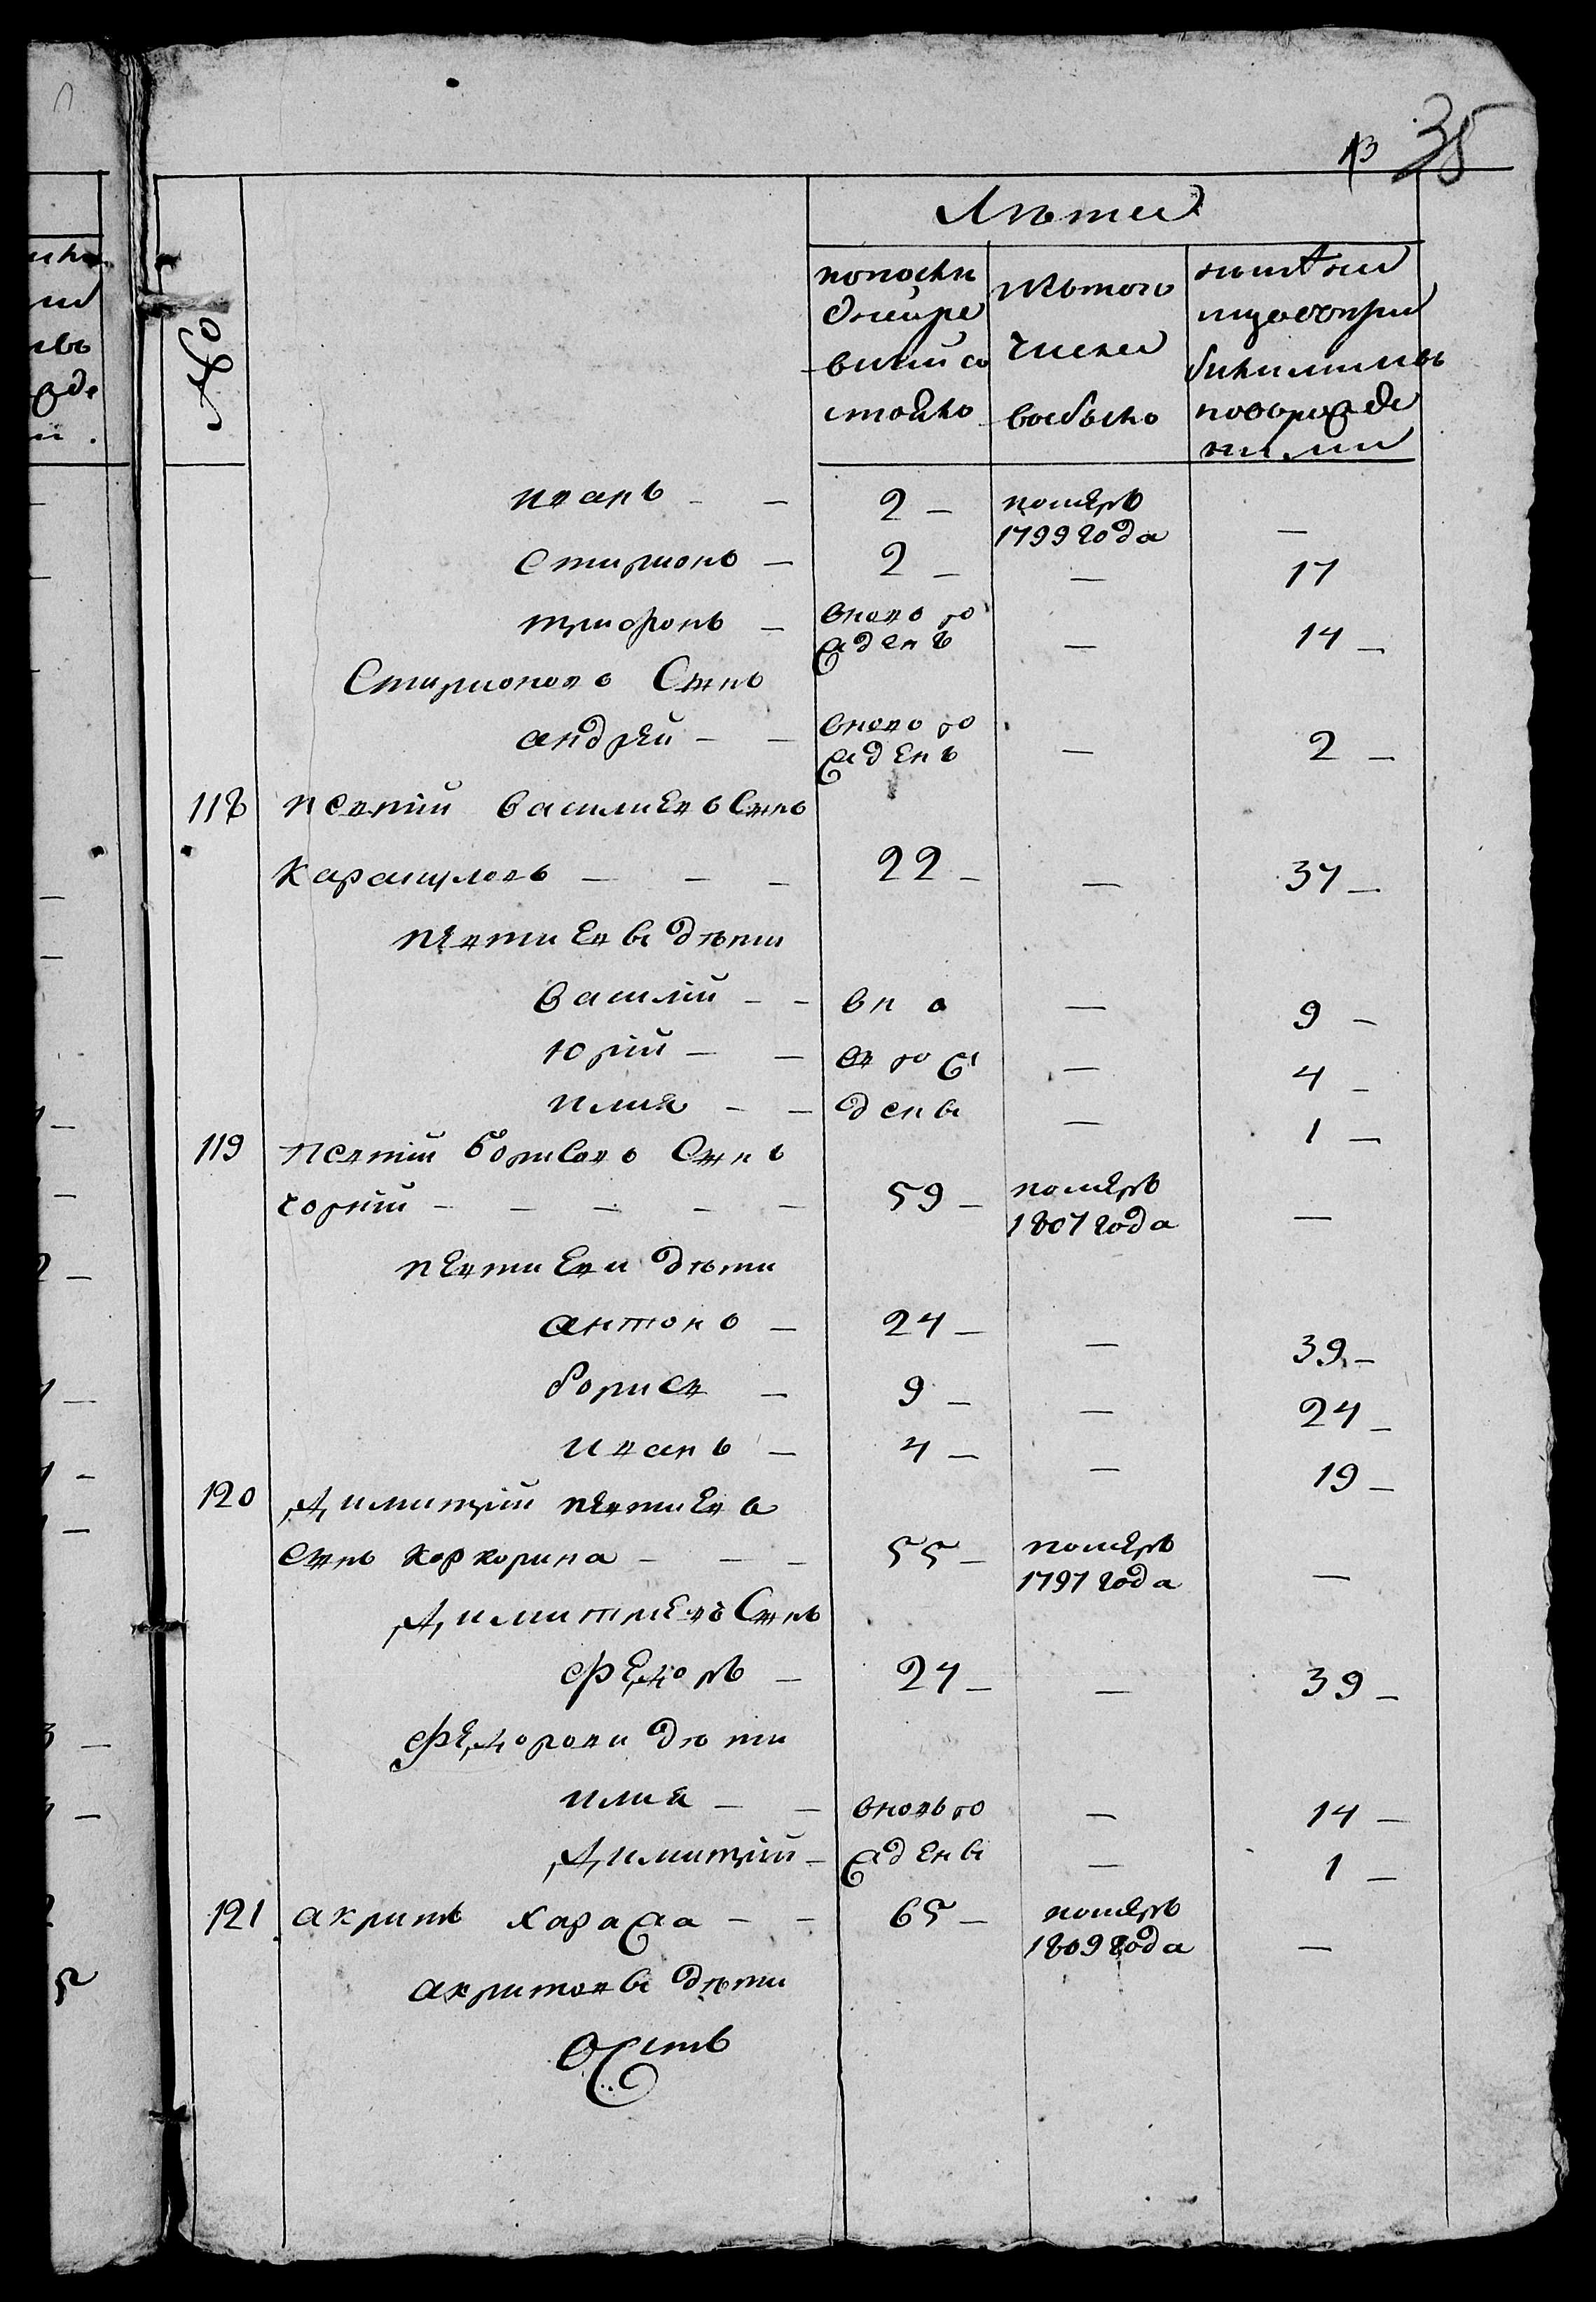 35
Лета
№
по после
дней ре
визии со
стояло
изъ того
числа
выбыло
ныне на
лицо съ при
былыми и ново
рожде
ными
иванъ — — 2 — померъ
1799 года —
стиріонъ — 2 — — 17
трифонъ — вновь ро
жденъ — 14 —
Стиріоновъ Сынъ
андрей — — вновь ро
жденъ — 2 —
118 псятій васильевъ Сынъ
Карацуловъ — — — 22 — — 37 —
пятиевы дѣти
василій — — вн о — 9 —
юрій — — въ ро ж — 4 —
илия — — дены — 1 —
119 псятій борисовъ Сынъ
чорній — — — — — 59 — померъ
1807 года —
пятиеви дѣти
антонъ — 24 — — 39 —
борисъ — 9 — — 24 —
иванъ — 4 — — 19 —
120 Димитрій пятиевъ
сынъ коркорина — — — 55 — померъ
1797 года —
Димитріевъ Сынъ
Федоръ — 24 — — 39 —
Федорови дѣти
илия — — вновь ро — 14 —
Димитрій — ждены — 1 —
121 акритъ хараджа — — 65 — померъ
1809 года —
акритовы дѣти